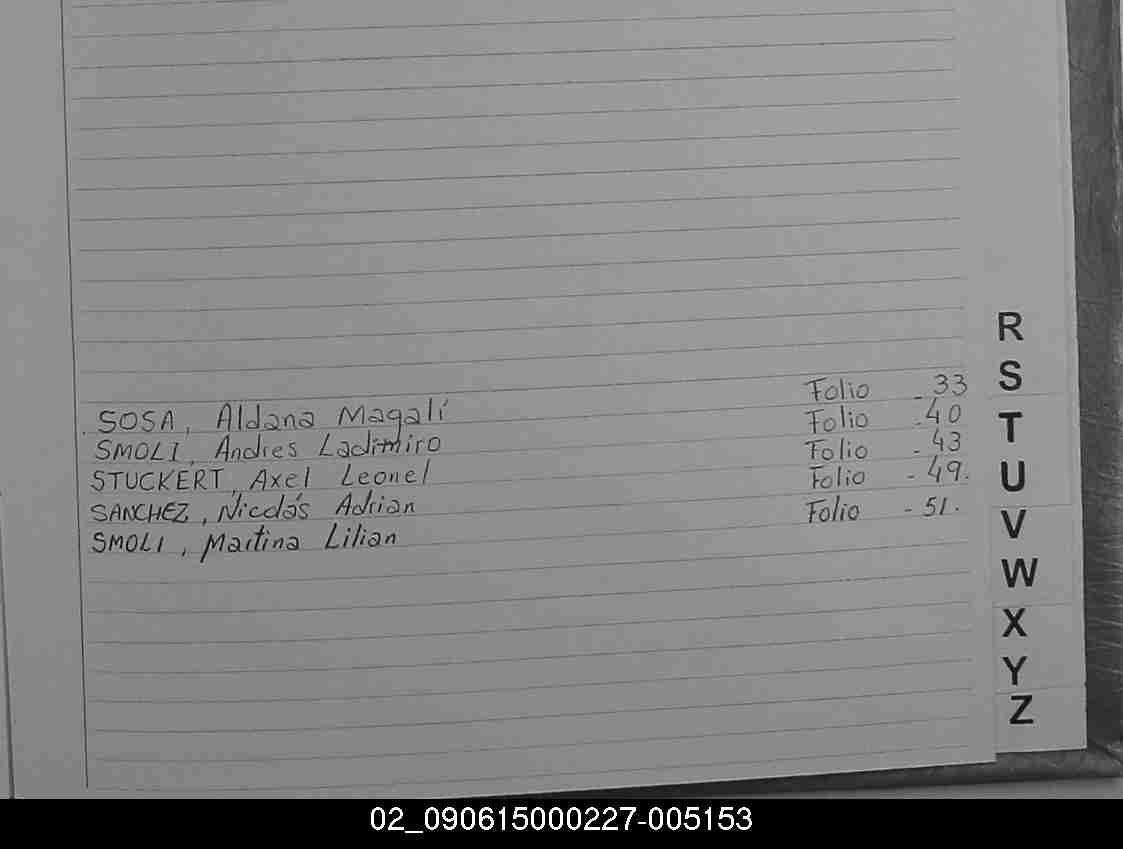 SOSA, Aldana Magalí Folio - 33
SMOLI, Andres Ladimiro Folio - 40
STUCKERT, Axel Leonel Folio - 43
SANCHEZ, Nicolás Adrian Folio - 49.
SMOLI, Martina Lilian Folio - 51.
R
S
T
U
V
W
X
Y
Z
02_090615000227-005153